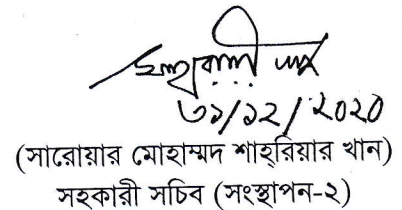 ৩১/১২/২০২০
(সারোয়ার মোহাম্মদ শাহ্‌রিয়ার খান)
সহকারী সচিব (সংস্থাপন-২)